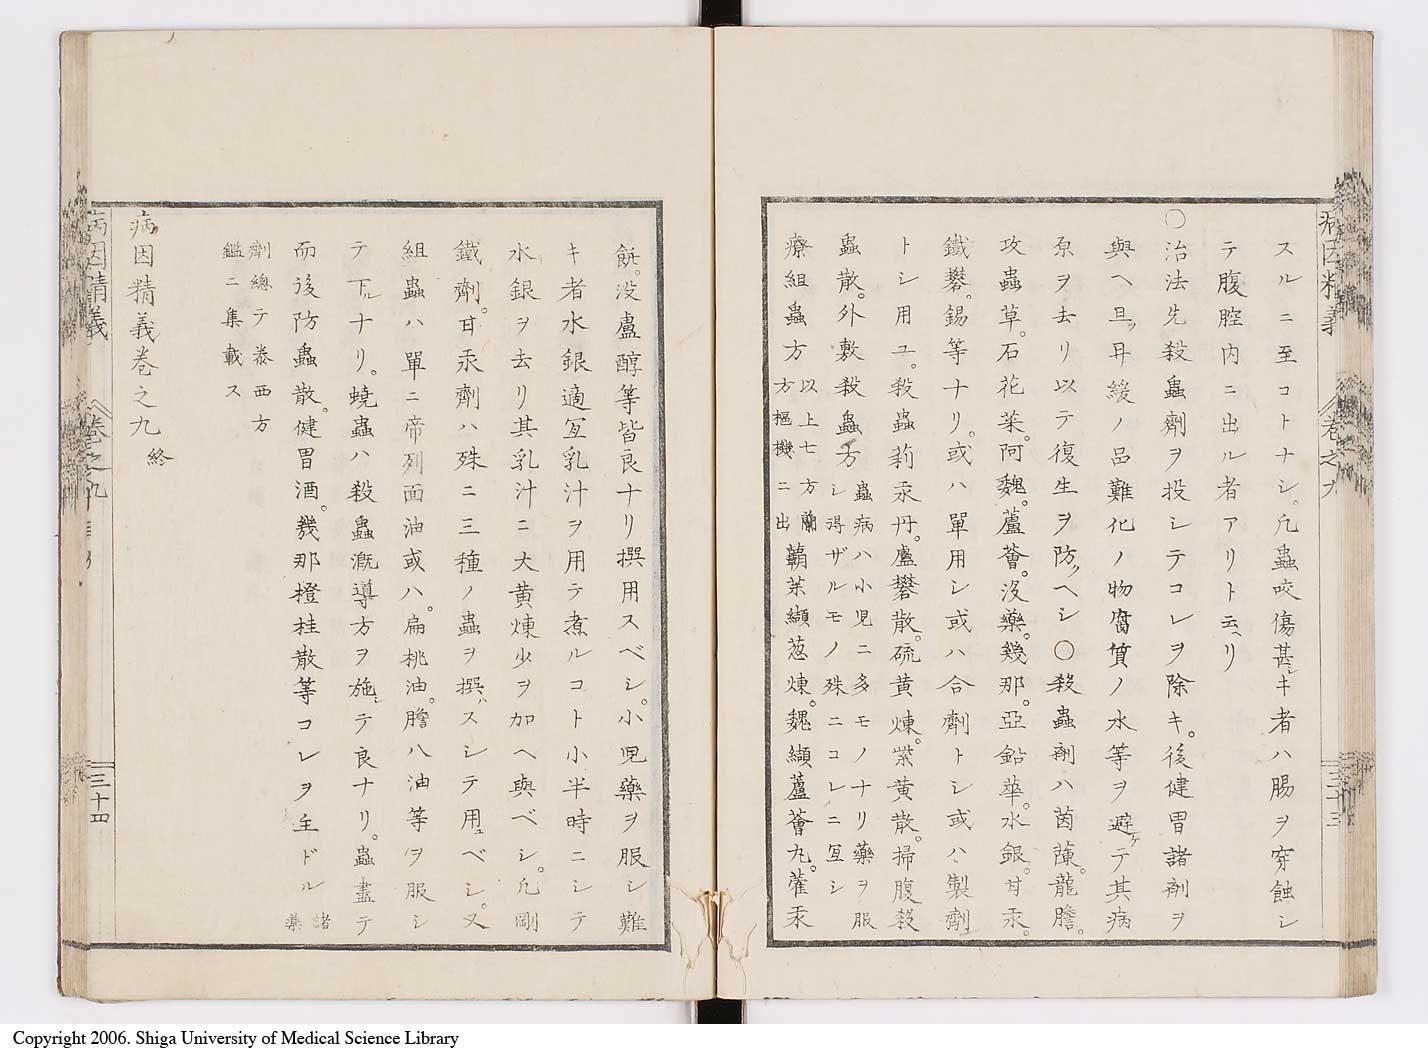 病因精義 卷之九 三十三
スルニ至コトナシ。凡蟲咬傷甚シキ者ハ腸ヲ穿蝕シ
テ腹腔内ニ出ル者アリト云ヘリ
〇治法先殺蟲劑ヲ投シテコレヲ除キ。後健胃諸劑ヲ
與ヘ且ツ弛緩ノ品難化ノ物腐質ノ水等ヲ避ケテ其病
原ヲ去リ以テ復生ヲ防ツヘシ〇殺蟲劑ハ茵蔯。龍膽。
攻蟲草。石花菜。阿魏。蘆薈。沒藥。幾那。亞鉛華。水銀。甘汞。
鐵礬。錫等ナリ。或ハ單用シ或ハ合劑トシ或ハ製劑
トシ用ユ。殺蟲莉汞丹。蘆礬散。硫黄煉。紫黄散。掃腹殺
蟲散。外敷殺蟲方 蟲病ハ小児ニ多モノナリ藥ヲ服
シ得ザルモノ殊ニコレニ宜シ
療組蟲方 以上七方蘭
方樞機ニ出 葫茱纈葱煉。魏纈蘆薈丸。藿汞
飥。沒盧醇等皆良ナリ撰用スベシ。小児藥ヲ服シ難
キ者水銀適宜乳汁ヲ用テ煮ルコト小半時ニシテ
水銀ヲ去リ其乳汁ニ大黄煉少ヲ加ヘ與ベシ。凡剛
鐵劑。甘汞劑ハ殊ニ三種ノ蟲ヲ撰ハスシテ用ユベシ。又
組蟲ハ單ニ帝列面油或ハ。扁桃油。膽八油等ヲ服シ
テ下ルナリ。蟯蟲ハ殺蟲漑導方ヲ施シテ良ナリ。蟲盡テ
而後防蟲散。健胃酒。幾那橙桂散等コレヲ主ドル 諸藥
劑總テ泰西方
鑑ニ集載ス
病因精義卷之九 終
病因精義 卷之九 三十四